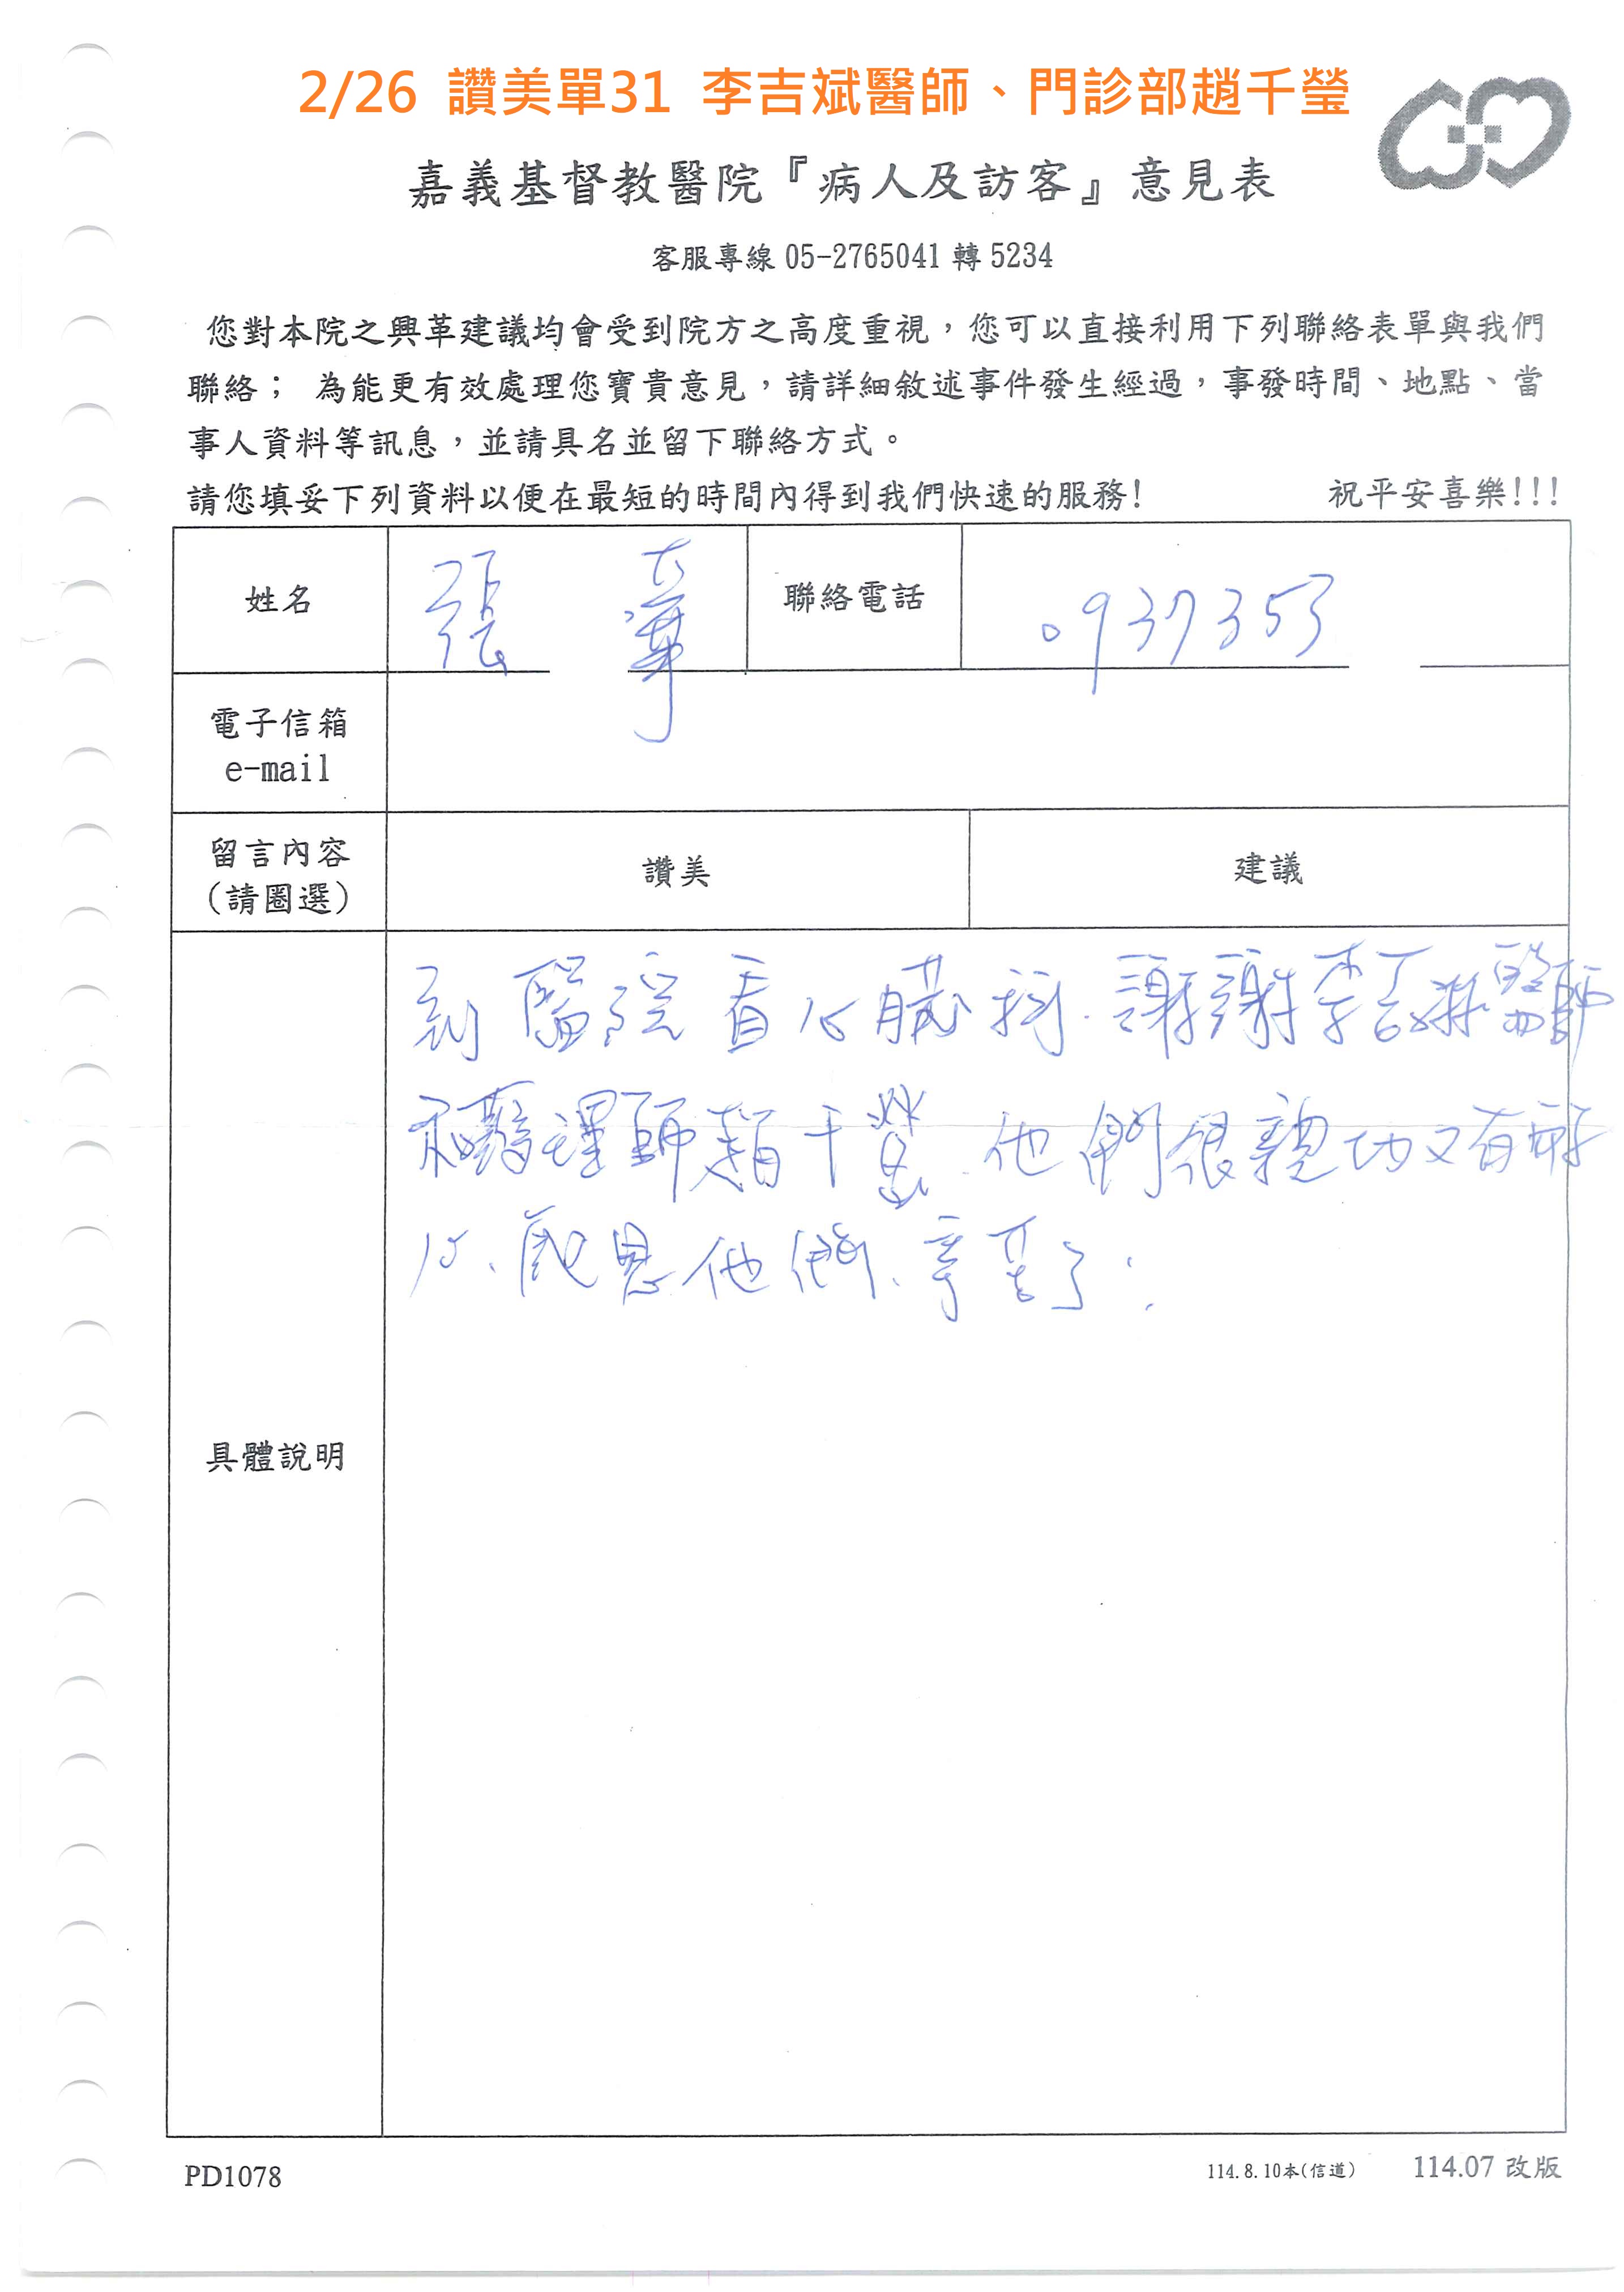 2/26 讚美單31 李吉斌醫師、門診部趙千瑩
嘉義基督教醫院『病人及訪客』意見表
客服專線 05-2765041 轉 5234
您對本院之興革建議均會受到院方之高度重視，您可以直接利用下列聯絡表單與我們
聯絡； 為能更有效處理您寶貴意見，請詳細敘述事件發生經過，事發時間、地點、當
事人資料等訊息，並請具名並留下聯絡方式。
請您填妥下列資料以便在最短的時間內得到我們快速的服務! 祝平安喜樂!!!
姓名 張 聯絡電話 0937353
電子信箱
e-mail
留言內容
(請圈選) 讚美 建議
具體說明
到醫院看心臟科.謝謝李吉斌醫師
和護理師趙千瑩.他們很親切又有耐
心、感恩他們、辛苦了:
PD1078 114.8.10本(信道) 114.07 改版